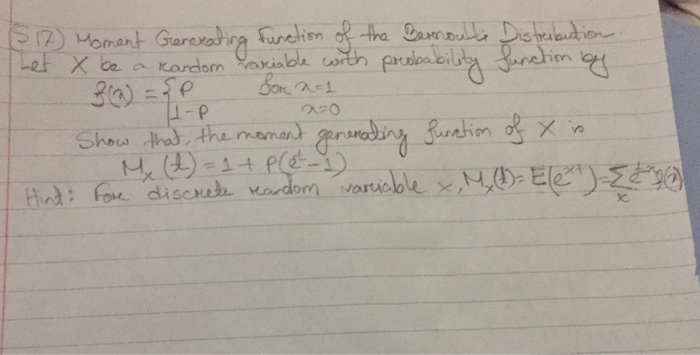 S17) Moment Generating Function of the Bernoulli Distribution.
Let X be a random variable with probability function by
f(x) = { p for x=1
1-p x=0
Show that, the moment generating function of X is
M_X(t) = 1 + P(e^t - 1)
Hint: For discrete random variable x, M_X(t) = E(e^{xt}) = Σ_x e^{tx} f(x)